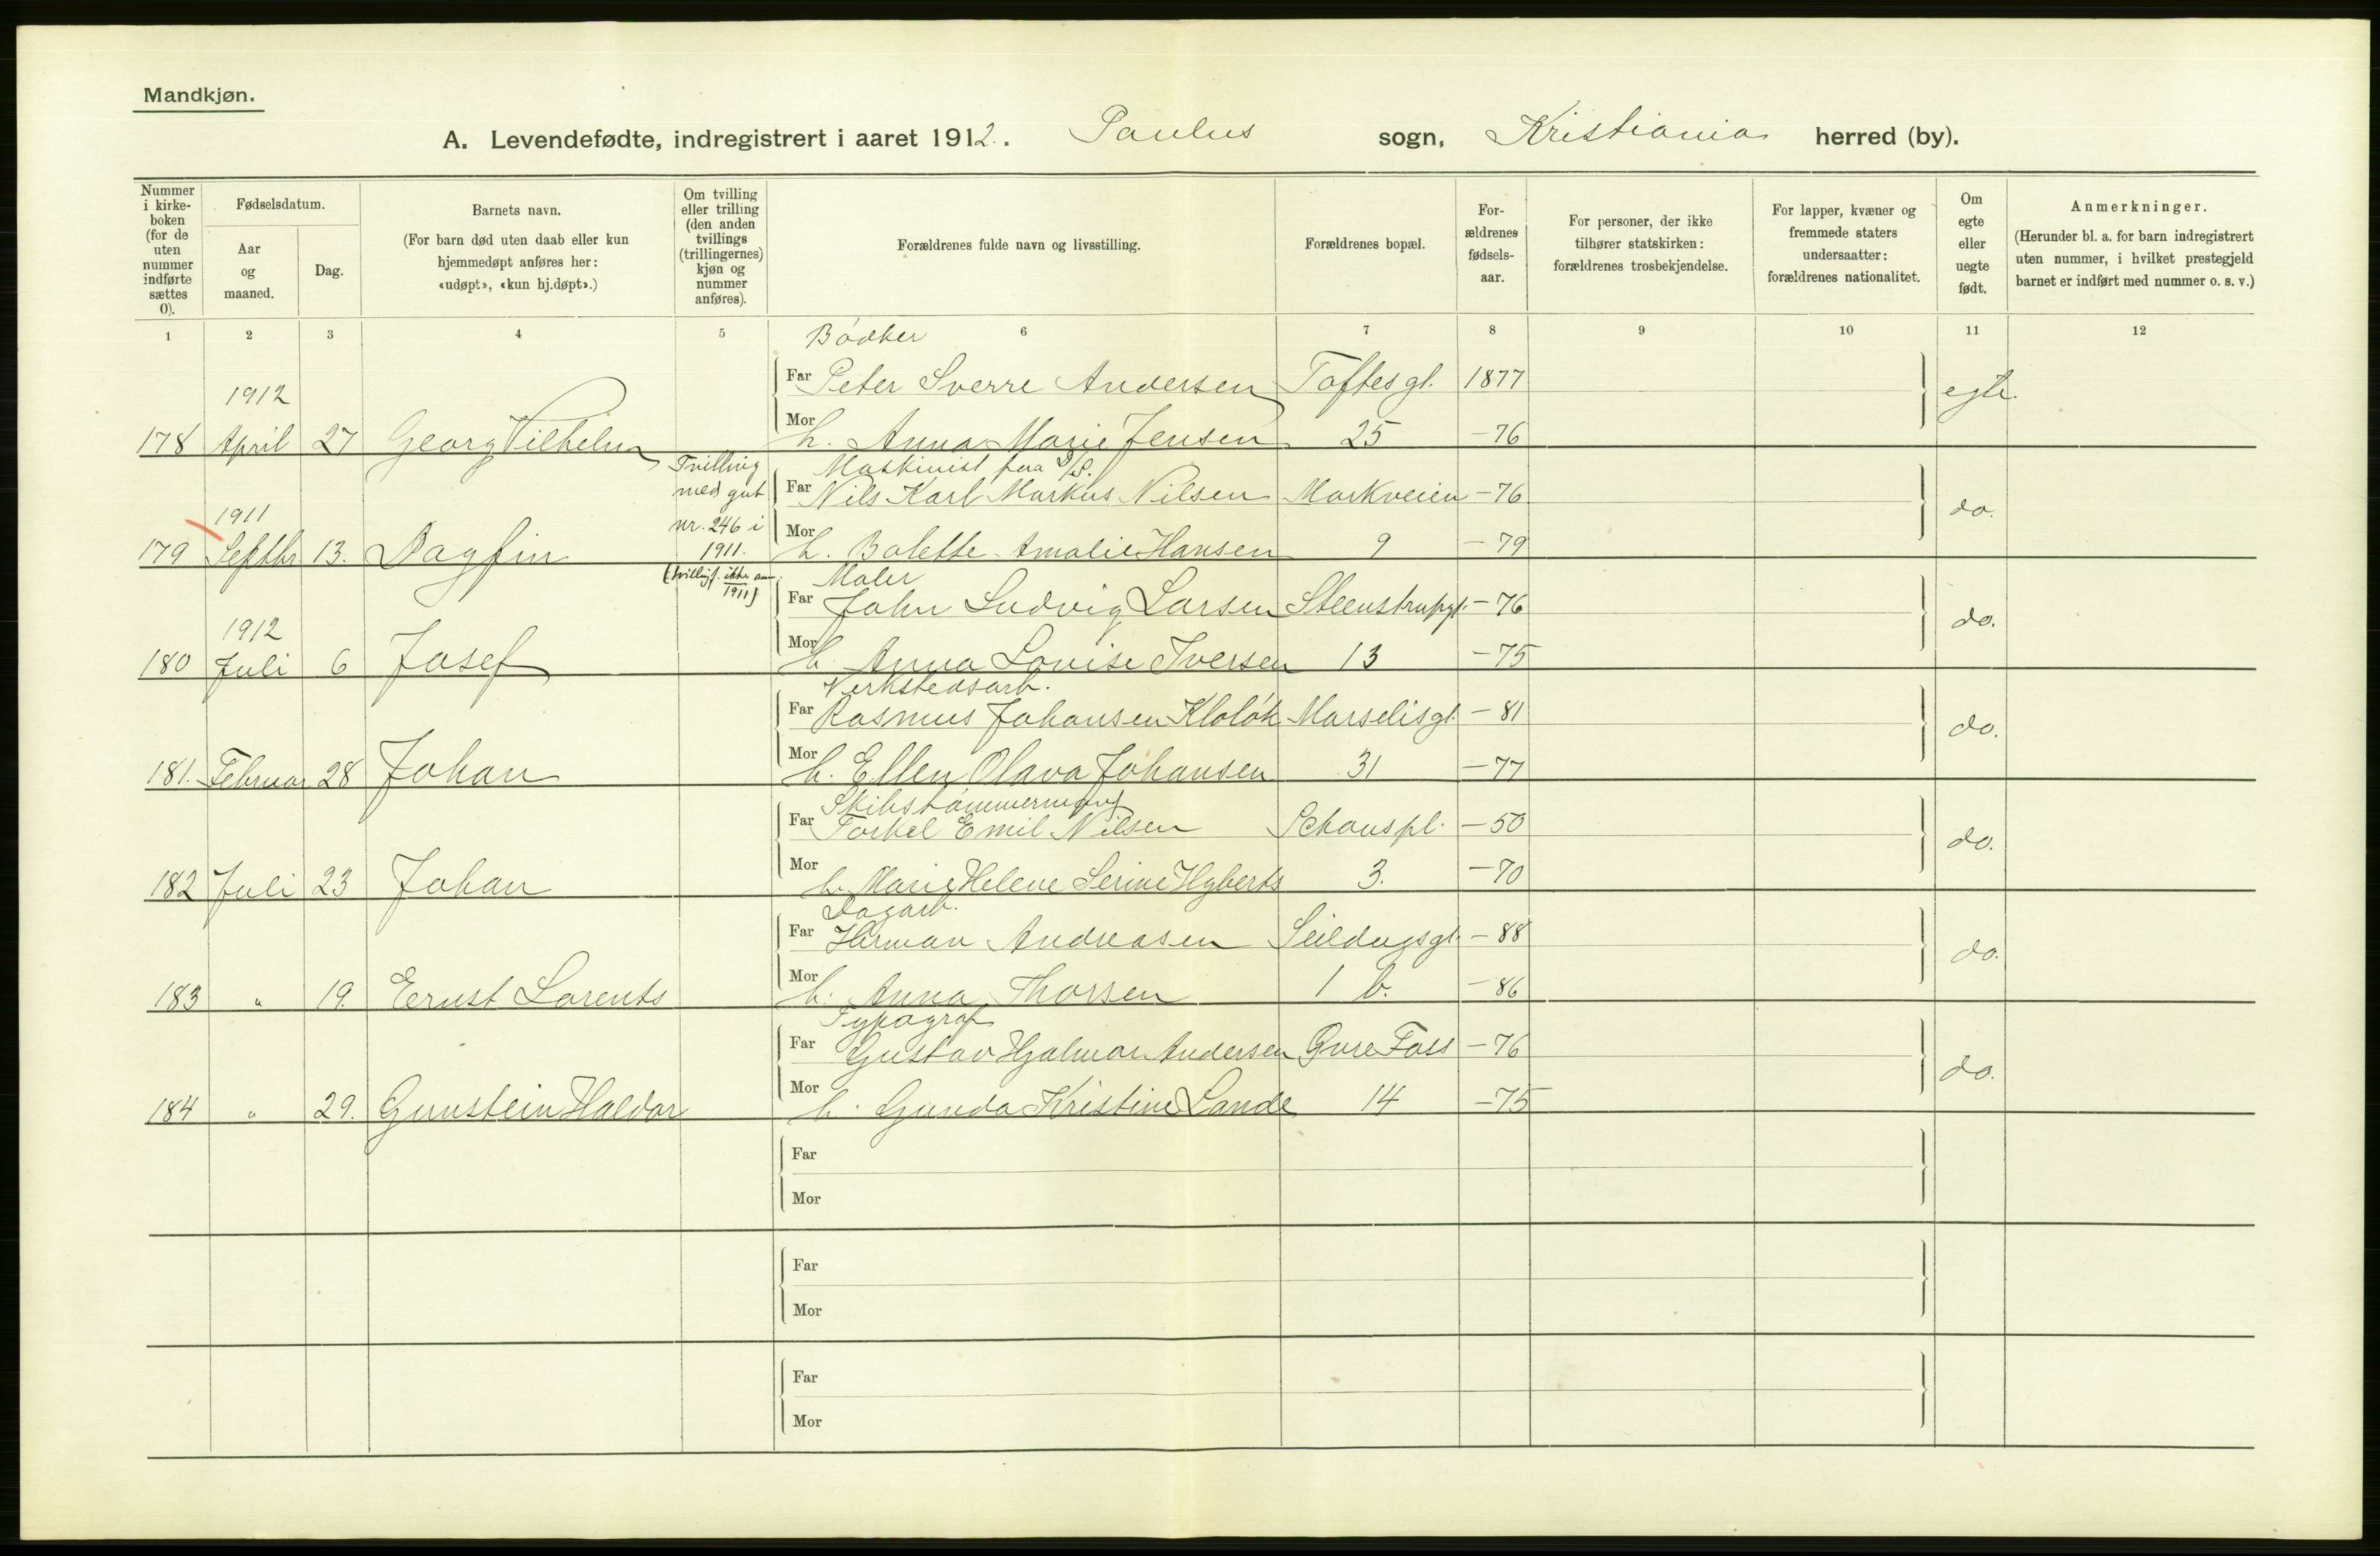 Mandkjøn.
A. Levendefødte, indregistrert i aaret 1912. Paulus sogn, Kristiania herred (by).
Nummer i kirke-boken (for de uten nummer indførte sættes 0).
Fødselsdatum.
Aar og maaned.
Dag.
Barnets navn.
(For barn død uten daab eller kun hjemmedøpt anføres her: «udøpt», «kun hj.døpt».)
Om tvilling eller trilling (den anden tvillings (trillingernes) kjøn og nummer anføres).
Forældrenes fulde navn og livsstilling.
Forældrenes bopæl.
For-ældrenes fødsels-aar.
For personer, der ikke tilhører statskirken: forældrenes trosbekjendelse.
For lapper, kvæner og fremmede staters undersaatter: forældrenes nationalitet.
Om egte eller uegte født.
Anmerkninger.
(Herunder bl. a. for barn indregistrert uten nummer, i hvilket prestegjeld barnet er indført med nummer o. s. v.)
1 2 3 4 5 6 7 8 9 10 11 12
Bødker
Far Peter Sverre Andersen Toftesgt. 1877
1912 egte.
178 April 27 Georg Vilhelm Mor h. Anna Marie Jensen 25 -76
Tvilling med gut nr. 246 i 1911.
Maskinist paa D/S.
Far Nils Karl Markus Nilsen Markveien -76
1911 do.
179 Septbr 13. Dagfin Mor h. Bolette Amalie Hansen 9 -79
Maler
Far John Ludvig Larsen Steenstrupgt. -76
1912 do.
180 Juli 6 Josef Mor h. Anna Lovise Iversen 13 -75
Verkstedsarb.
Far Rasmus Johansen Kloløk Marselisgt. -81
do.
181. Februar 28 Johan Mor h. Ellen Olava Johansen 31 -77
Skibstømmermand
Far Torkel Emil Nilsen Schouspl. -50
do.
182 Juli 23 Johan Mor h. Marie Helene Serine Hyberts 3. -70
Dagarb.
Far Herman Andreasen Seildugsgt. -88
do.
183 " 19. Ernst Lorents Mor h. Anna Thorsen 1 b. -86
Typograf
Far Gustav Hjalmar Andersen Øvre Foss -76
do.
184 " 29. Gunstein Haldor Mor h. Gunda Kristine Lande 14 -75
Far
Mor
Far
Mor
Far
Mor